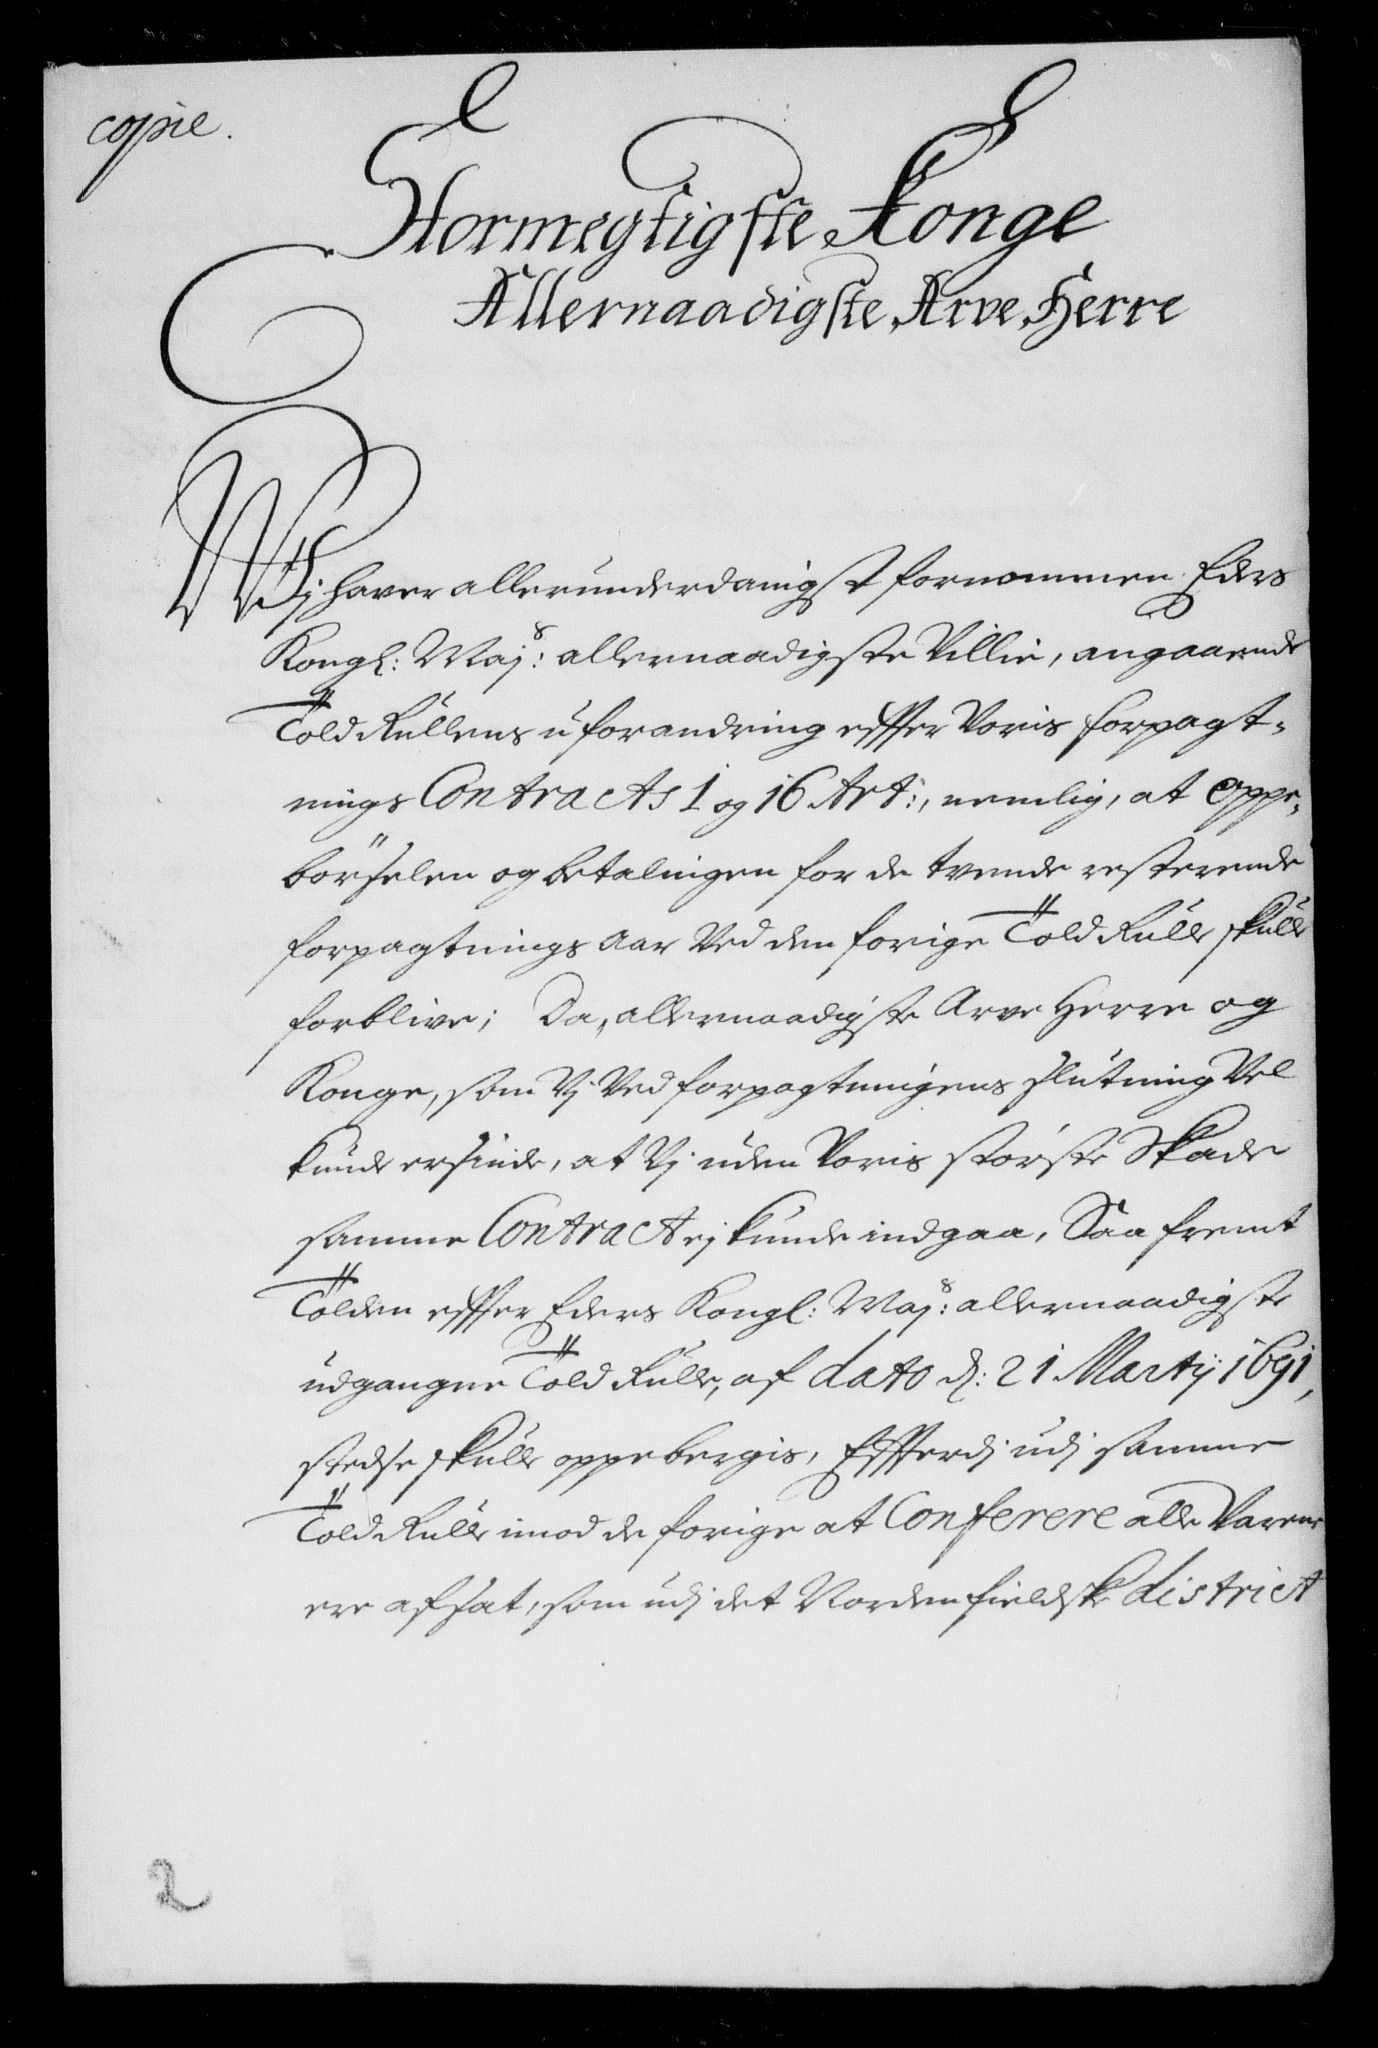 copie.
Stormegtigste Konge
Allernaadigste Arve Herre
Wj haver allerunderdanigst fornommen Eders
Kongl: Maj:s allernaadigste Villie, angaaende
Told Rullens uforandring effter Voris forpagt-
nings Contracts 1 og 16 Art:, nemlig, at oppe-
börselen og betalingen for de tvende resterende
forpagtnings Aar Ved den forige Told Rulle skulle
forblive; Da, allernaadigste Arve Herre og
Konge, som Vj Ved forpagtningens slutning Vel
kunde ersinde, at Vj uden Voris störste Skade
samme Contract ej kunde indgaa, Saa fremt
Tolden effter Eders Kongl: Maj:s allernaadigste
udgangne Told Rulle, af dato d: 21 Martij 1691,
stedse skulle oppebergis, Effterdj udj samme
Told Rulle imod de forige at Conferere alle Varene
ere afsat, som udj det Nordenfieldske district
2